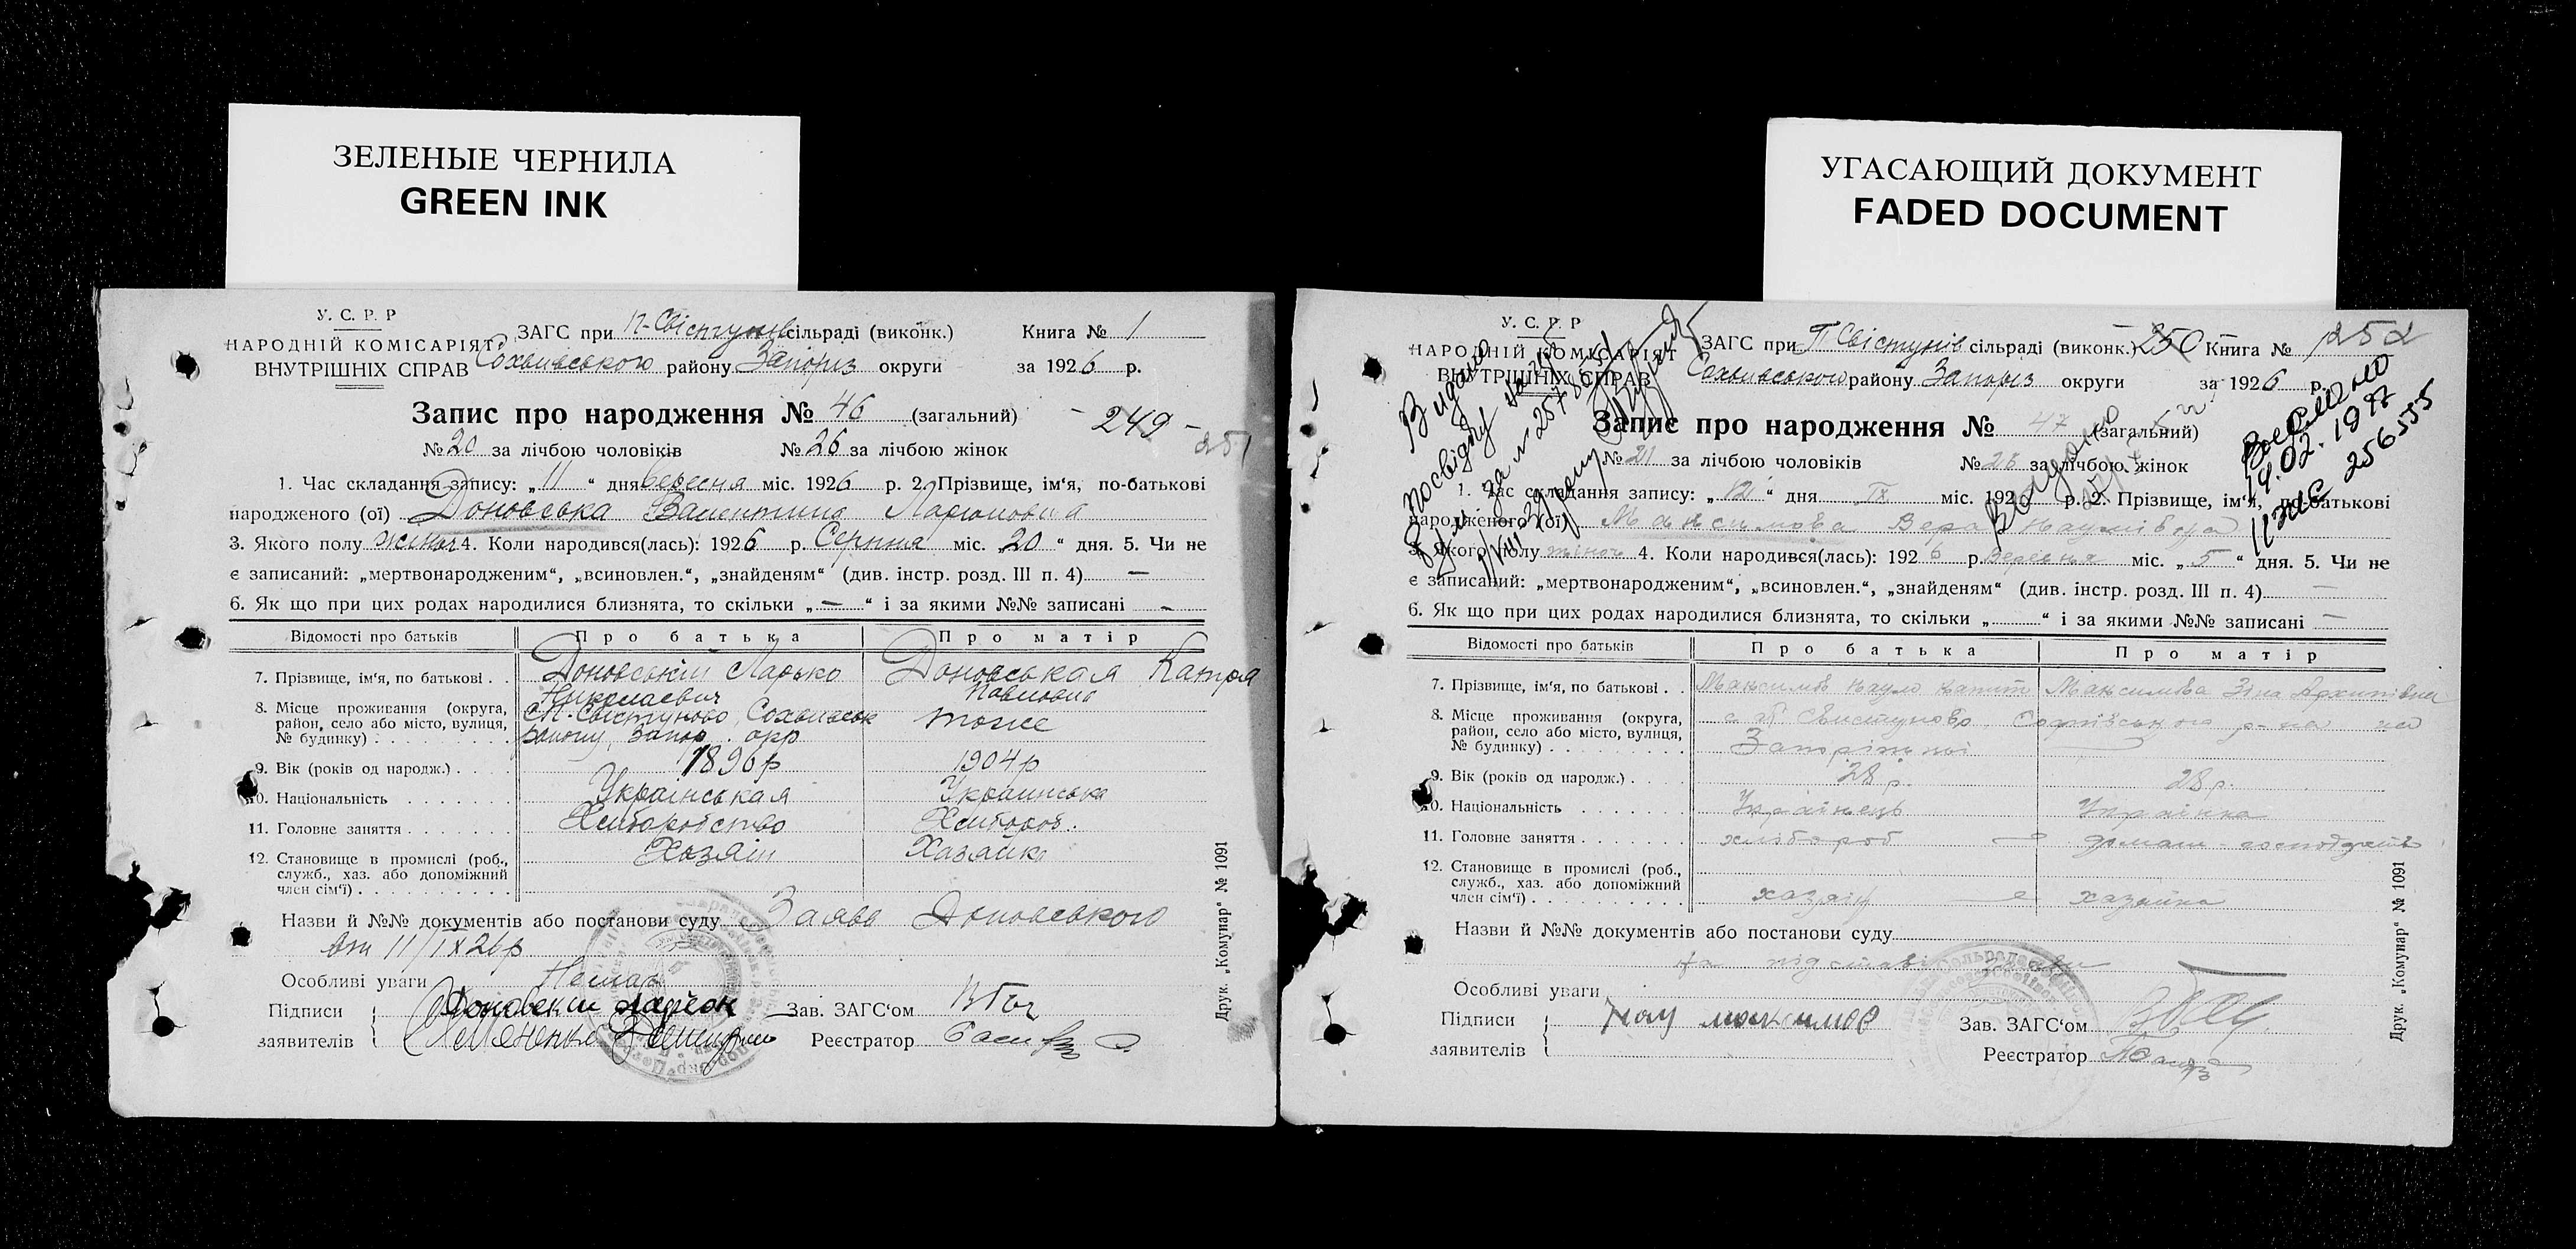 ЗЕЛЕНЫЕ ЧЕРНИЛА
GREEN INK
У. С. Р. Р
НАРОДНІЙ КОМІСАРІЯТ
ВНУТРІШНІХ СПРАВ
ЗАГС при П-Свістунів сільраді (виконк.) Книга № 1
району Запоріз округи за 1926 р.
Запис про народження № 46 (загальний)
- 249 -
251
№ 20 за лічбою чоловіків № 26 за лічбою жінок
1. Час складання запису: „ 11 “ дня вересня міс. 1926 р. 2. Прізвище, ім‘я, по-батькові
народженого (ої) Доновська Валентина Ларионовна
3. Якого полу жіноч 4. Коли народився(лась): 1926 р. Серпня міс. „20“ дня. 5. Чи не
є записаний: „мертвонародженим“, „всиновлен.“, „знайденям“ (див. інстр. розд. III п. 4) —
6. Як що при цих родах народилися близнята, то скільки „ — “ і за якими №№ записані -
Відомості про батьків Про батька Про матір
7. Прізвище, ім‘я, по батькові . . Доновський Ларько Николаевич Доновськая Катря Павловна
8. Місце проживання (округа, район, село або місто, вулиця, № будинку) . . . Свістуново, району, Запор. окр тоже
9. Вік (років од народж.) . . . . 1896 р 1904 р
10. Національність . . . . . . . Українськая Украинська
11. Головне заняття . . . . . . . Хлиборобство Хлибороб.
12. Становище в промислі (роб., служб., хаз. або допоміжний член сім‘ї) . . . Хозяін Хазайка
Назви й №№ документів або постанови суду Заява Доновського
від 11/IX 26 р
Особливі уваги Немає
Підписи заявителів Доновски Ларсок
Зав. ЗАГС‘ом
Реєстратор
Друк. „Комунар“ № 1091
УГАСАЮЩИЙ ДОКУМЕНТ
FADED DOCUMENT
У. С. Р. Р
НАРОДНІЙ КОМІСАРІЯТ
ВНУТРІШНІХ СПРАВ
ЗАГС при П Свістунів сільраді (виконк.) 250 Книга № 252
району Запоріз округи за 1926 р.
Видано посвідку
Видано
19.02.1997
256555
Запис про народження № 47 (загальний)
№ 21 за лічбою чоловіків № 26 за лічбою жінок
1. Час складання запису: „ 12 “ дня IX міс. 192 р. 2. Прізвище, ім‘я, по-батькові
народженого (ої) Максимова Вера Наумівна
3. Якого полу жіноч 4. Коли народився(лась): 1926 р. Вересня міс. „ 5 “ дня. 5. Чи не
є записаний: „мертвонародженим“, „всиновлен.“, „знайденям“ (див. інстр. розд. III п. 4) —
6. Як що при цих родах народилися близнята, то скільки „ “ і за якими №№ записані —
Відомості про батьків Про батька Про матір
7. Прізвище, ім‘я, по батькові . . Максимов Наум Максимова Зіна Архипівна
8. Місце проживання (округа, район, село або місто, вулиця, № будинку) . . . Свистуново р-на
9. Вік (років од народж.) . . . . 28 р. 28 р.
10. Національність . . . . . . . Українець Українка
11. Головне заняття . . . . . . . хлібороб
12. Становище в промислі (роб., служб., хаз. або допоміжний член сім‘ї) . . . хазяїн хазяйка
Назви й №№ документів або постанови суду
на підставі
Особливі уваги
Підписи заявителів Наум Максимов
Зав. ЗАГС‘ом
Реєстратор
Друк. „Комунар“ № 1091